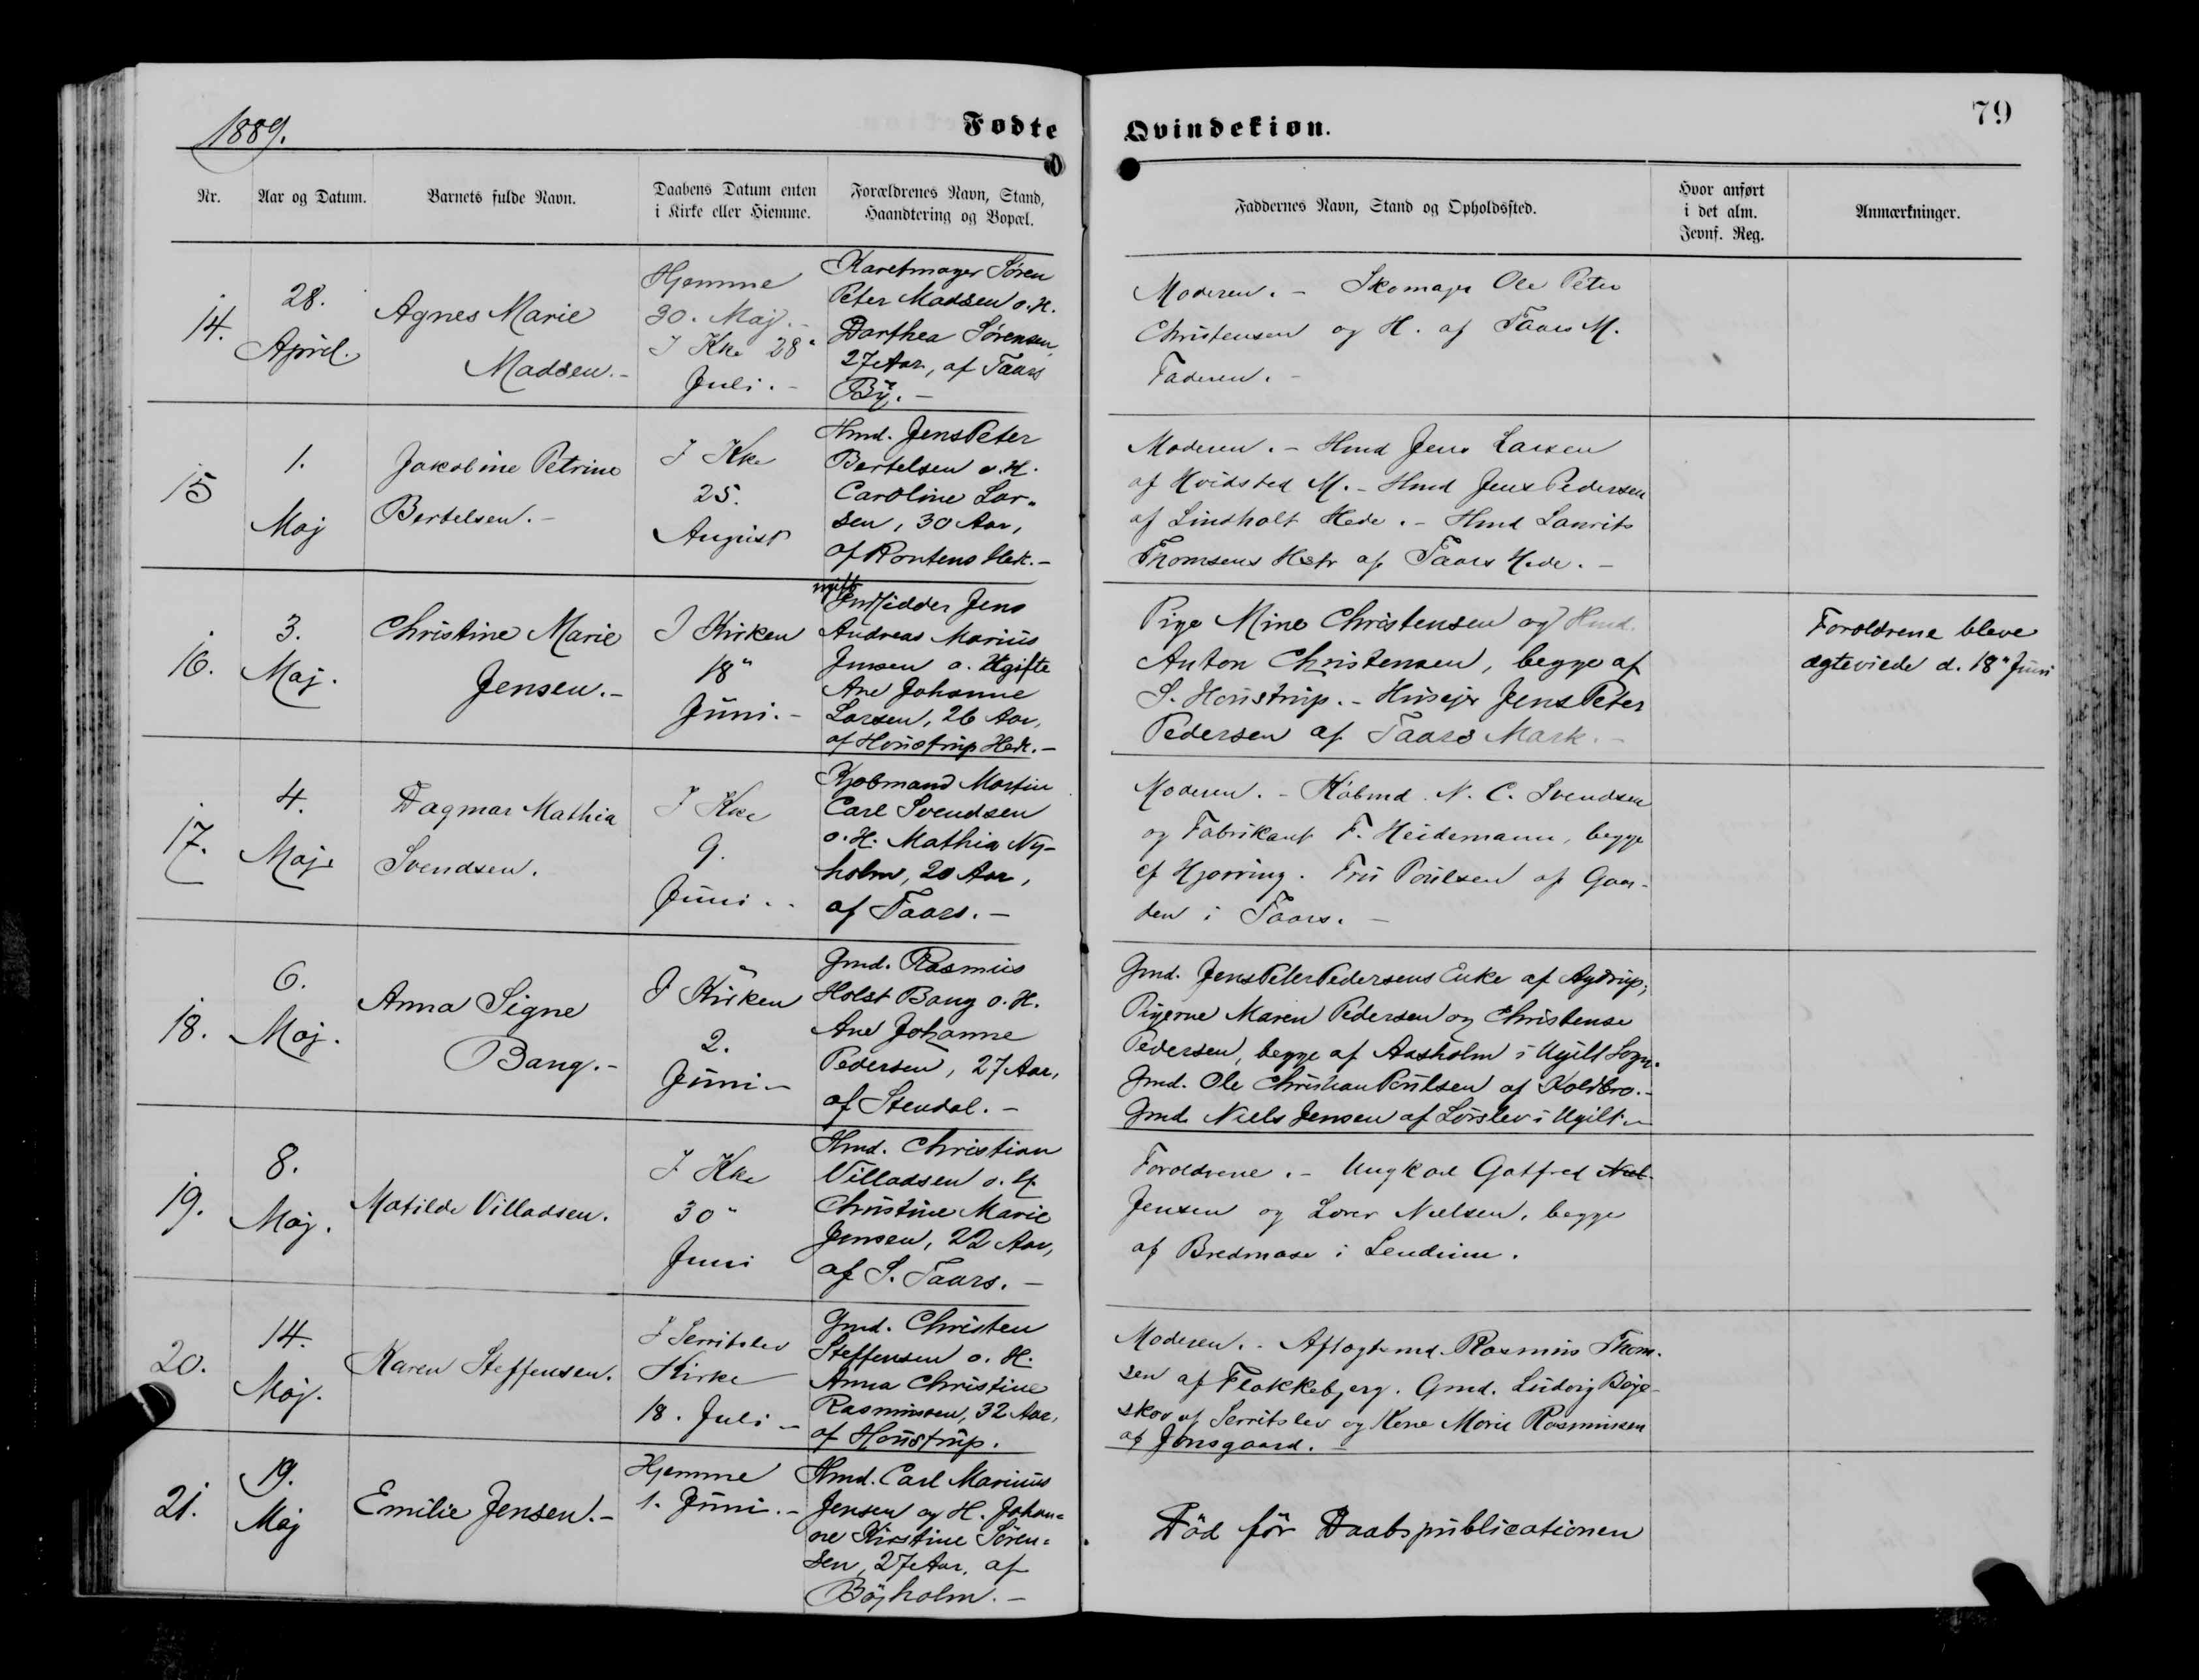 1889.
Fødte
Qvindekiøn.
79
Nr.
Aar og Datum.
Barnets fulde Navn.
Daabens Datum enten
i Kirke eller Hiemme.
Forældrenes Navn, Stand,
Haandtering og Bopæl.
Faddernes Navn, Stand og Opholdssted.
Hvor anført
i det alm.
Jevnf. Reg.
Anmærkninger.
14.
28.
April.
Agnes Marie
Madsen.-
Hjemme
30. Maj.-
I Kke 28"
Juli.-
Karetmager Søren
Peter Madsen o. H.
Dorthea Sørensen,
27 Aar, af Taars
By.-
Moderen. - Skomager Ole Peter
Christensen og H. af Taars M.
Faderen. -
15
1.
Maj
Jakobine Petrine
Bertelsen.-
I Kke
25.
August
Hmd. Jens Peter
Bertelsen o. H.
Caroline Lar-
sen, 30 Aar,
af Hede.-
Moderen. - Hmd Jens Larsen
af Kvidsted M. - Hmd Jens Pedersen
af Lindholt Hede. - Hmd Laurits
Thomsens Hstr af Taars Hede. -
16.
3.
Maj.
Christine Marie
Jensen.-
I Kirken
18"
Juni.-
Indsidder Jens
Andreas Marius
Jensen o. Ugifte
Ane Johanne
Larsen, 26 Aar,
af Houstrup Hede.-
Pige Mine Christensen og Hmd.
Anton Christensen, begge af
S. Houstrup. - Husejer Jens Peter
Pedersen af Taars Mark. -
Forældrene bleve
ægteviede d. 18" Juni
17.
4.
Maj.
Dagmar Mathia
Svendsen.
I Kke
9.
Juni..
Kjøbmand Martin
Carl Svendsen
o. H. Mathia Ny-
holm, 20 Aar,
af Taars. -
Moderen. - Købmd. N. C. Svendsen
og Fabrikant F. Heidemann, begge
af Hjørring. Fru Poulsen af Gaar-
den i Taars. -
18.
6.
Maj.
Anna Signe
Bang.-
I Kirken
2.
Juni.-
Gmd. Rasmus
Holst Bang o. H.
Ane Johanne
Pedersen, 27 Aar,
af Stendal. -
Gmd. Jens Peter Pedersens Enke af
Pigerne Maren Pedersen og Christense
Pedersen, begge af Aasholm i Ugilt Sogn.
Gmd. Ole Christian Poulsen af Koldbro.-
Gmd. Niels Jensen af Lørslev i Ugilt.-
19.
8.
Maj.
Matilde Villadsen.
I Kke
30"
Juni
Hmd. Christian
Villadsen o. H.
Christine Marie
Jensen, 22 Aar,
af S. Taars. -
Forældrene. - Ungkarl Gotfred
Jensen og Nielsen, begge
af Bredmose i Lendum.
20.
14.
Maj.
Karen Steffensen.
I Serritslev
Kirke
18. Juli -
Gmd. Christen
Steffensen o. H.
Anna Christine
Rasmussen, 32 Aar,
af Houstrup.
Moderen. - Aftægtsmd. Rasmus Thom-
sen af Flakkebjerg. Gmd. Ludvig Böje-
skov af Serritslev og Kone Marie Rasmussen
af Jonsgaard. -
21.
19.
Maj
Emilie Jensen.-
Hjemme
1. Juni.-
Hmd. Carl Marinus
Jensen og H. Johan-
ne Kirstine Søren-
sen, 27 Aar, af
Böjholm. -
Död för Daabspublicationen